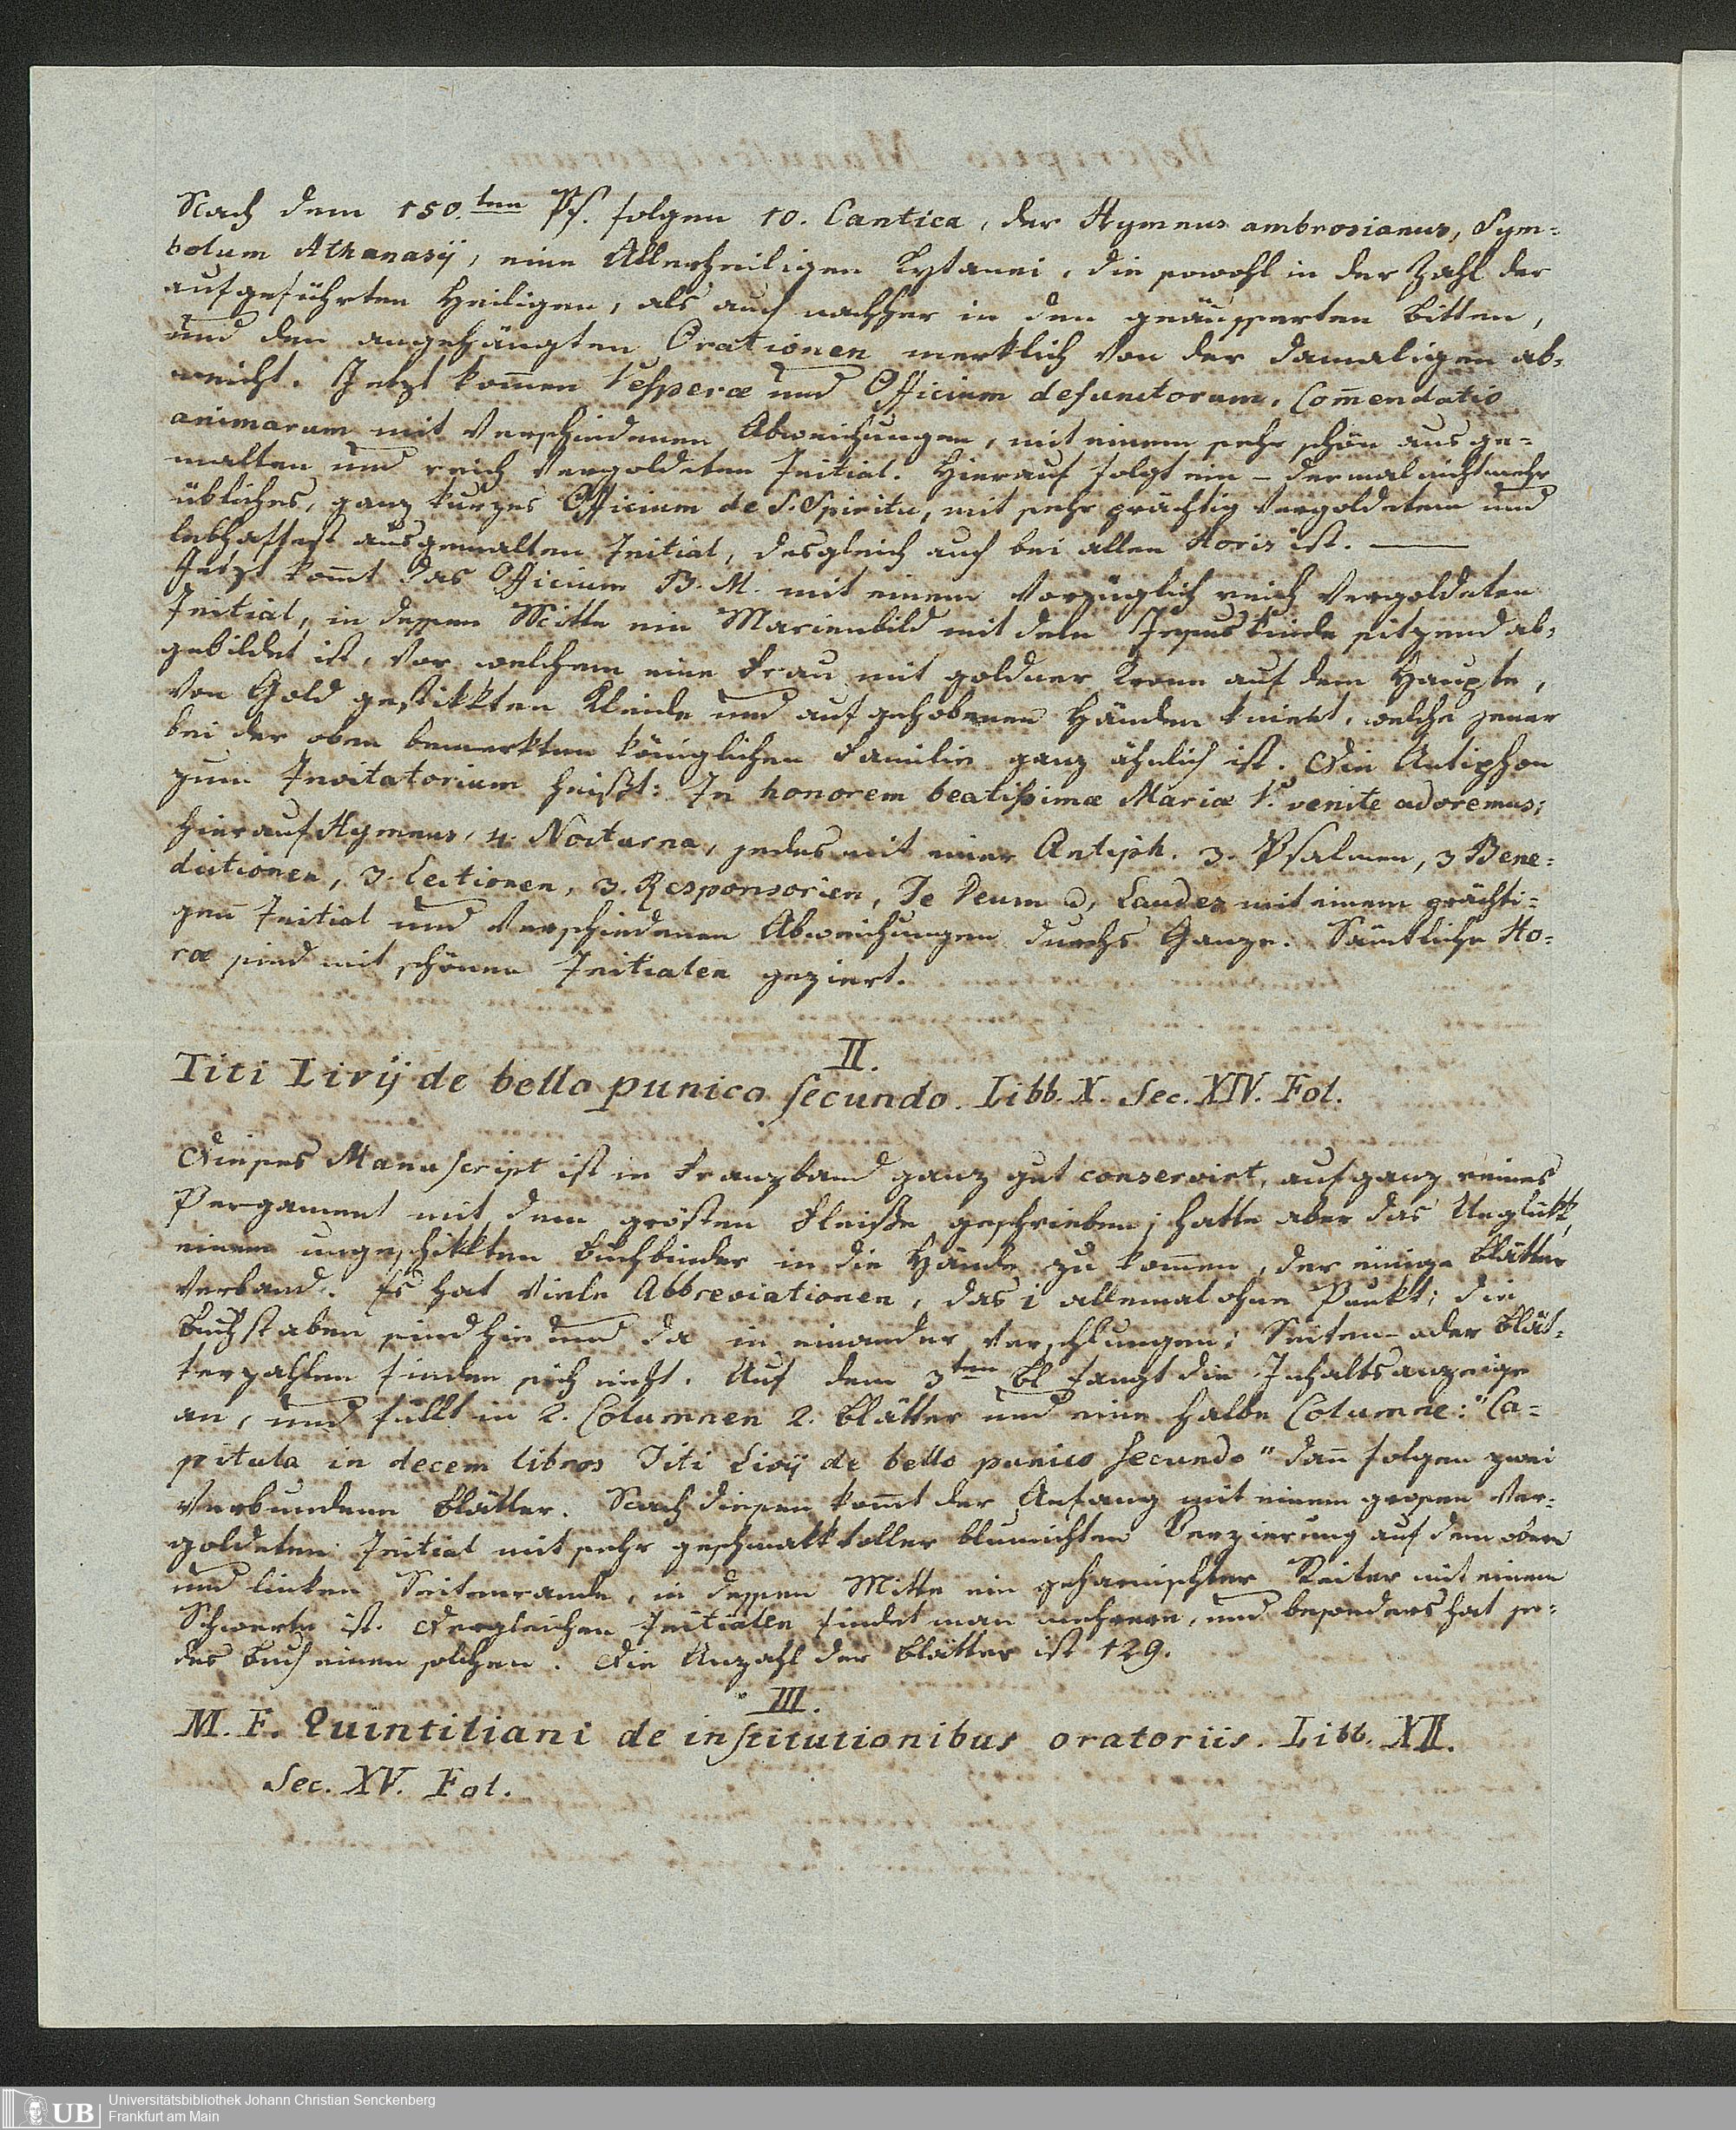 Nach dem 150.ten Ps. folgen 10. Cantica, der Hymnus ambrosianus, Sym=
bolum Athanasij, eine Allerheiligen Lytanei, die sowohl in der Zahl der
aufgeführten Heiligen, als auch nachher in den geäusserten Bitten,
und den angehängten Orationen merklich von der damaligen ab=
weicht. Jetzt kom̄en Vesperæ und Officium defunctorum. Com̄endatio
animarum mit verschiedenen Abweichungen, mit einem sehr schön ausge=
malten und reich vergoldeten Initial. Hierauf folgt ein – dermal nicht mehr
übliches, ganz kurzes Officium de S. Spiritu, mit sehr prächtig vergoldetem und
lebhaftest ausgemalten Initial, desgleich auch bei allen Horis ist. —
Jetzt kom̄t das Officium B. M. mit einem vorzüglich reich vergoldeten
Initial, in dessen Mitte ein Marienbild mit dem Jesus Kinde sitzend ab=
gebildet ist, vor welchem eine Frau mit goldner Krone auf dem Haupte,
von Gold gestikkten Kleide und aufgehobenen Händen kniet, welche jener
bei der oben bemerkten königlichen Familie ganz ähnlich ist. Die Antiphon
zum Invitatorium heißt: In honorem beatißimæ Mariæ V. venite adoremus;
hierauf Hymnus, 4. Nocturna, jedes mit einer Antiph. 3. Psalmen, 3 Bene=
dictionen, 3. Lectionen, 3. Responsorien, Te Deum Laudes mit einem prächti=
gen Initial und verschiedenen Abweichungen durchs Ganze. Sämtliche Ho=
ræ sind mit schönen Initialen geziert.
II.
Titi Livij de bello punico secundo. Libb. X. Sec. XIV. Fol.
Dieses Manuscript ist in Franzband ganz gut conservirt, auf ganz reines
Pergament mit dem grösten Fleiße geschrieben; hatte aber das Unglükk,
einem ungeschikkten Buchbinder in die Hände zu kom̄en, der einige Blätter
verband. Es hat viele Abbreviationen, das i allemal ohne Punkt; die
Buchstaben sind hie und da in einander verschlungen; Seiten- oder Blät=
terzahlen finden sich nicht. Auf dem 3ten Bl fangt die Inhaltsanzeige
an, und füllt in 2. Columnen 2. Blätter und eine halbe Columne: "Ca=
pitula in decem libros Titi Livij de bello punico secundo" dan̄ folgen zwei
verbundene Blätter. Nach diesen kom̄t der Anfang mit einem grosen ver=
goldeten Initial mit sehr geschmakkvoller blumichten Verzierung auf dem obern
und linken Seitenrande, in dessen Mitte ein geharnischter Reiter mit einem
Schwerte ist. Dergleichen Initialen findet man mehrere, und besonders hat je=
des Buch einen solchen. Die Anzahl der Blätter ist 129.
III.
M. F. Quintiliani de institutionibus oratoriis. Libb. XII.
Sec. XV. Fol.
UB Universitätsbibliothek Johann Christian Senckenberg
Frankfurt am Main